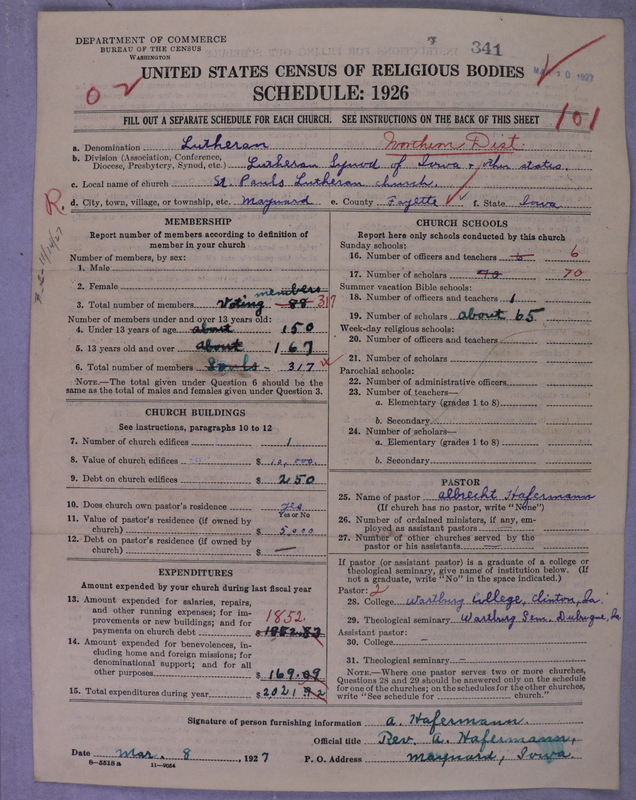 DEPARTMENT OF COMMERCE
BUREAU OF THE CENSUS
WASHINGTON
341
UNITED STATES CENSUS OF RELIGIOUS BODIES
SCHEDULE: 1926
101
FILL OUT A SEPARATE SCHEDULE FOR EACH CHURCH. SEE INSTRUCTIONS ON THE BACK OF THIS SHEET
a. Denomination Lutheran Northern Dist.
b. Division (Association, Conference, Diocese, Presbytery, Synod, etc.) Lutheran Synod of Iowa & other states.
c. Local name of church St. Pauls Lutheran church.
R. d. City, town, village, or township, etc. Maynard e. County Fayette f. State Iowa
MEMBERSHIP
Report number of members according to definition of
member in your church
Number of members, by sex:
1. Male
2. Female
3. Total number of members Voting members 88 317
Number of members under and over 13 years old:
4. Under 13 years of age about 150
5. 13 years old and over about 167
6. Total number of members Souls - 317
NOTE.—The total given under Question 6 should be
same as the total of males and females given under Question 3.
CHURCH BUILDINGS
See instructions, paragraphs 10 to 12
7. Number of church edifices 1
8. Value of church edifices $ 10,000.
9. Debt on church edifices $ 250
10. Does church own pastor's residence yes
Yes or No
11. Value of pastor's residence (if owned by
church) $ 5,000
12. Debt on pastor's residence (if owned by
church) $ —
EXPENDITURES
Amount expended by church during last fiscal year
13. Amount expended for salaries, repairs,
and other running expenses; for im-
provements or new buildings; and for
payments on church debt 1852. $ 1852.83
14. Amount expended for benevolences, in-
cluding home and foreign missions; for
denominational support; and for all
other purposes $ 169.09
15. Total expenditures during year $ 2021.92
CHURCH SCHOOLS
Report here only schools conducted by this church
Sunday schools:
16. Number of officers and teachers 6 6
17. Number of scholars 70 70
Summer vacation Bible schools:
18. Number of officers and teachers 1
19. Number of scholars about 65
Week-day religious schools:
20. Number of officers and teachers
21. Number of scholars
Parochial schools:
22. Number of administrative officers
23. Number of teachers—
a. Elementary (grades 1 to 8)
b. Secondary
24. Number of scholars—
a. Elementary (grades 1 to 8)
b. Secondary
PASTOR
25. Name of pastor Albrecht Hafermann
(If church has no pastor, write "None")
26. Number of ordained ministers, if any, em-
ployed as assistant pastors
27. Number of other churches served by the
pastor or his assistants —
If pastor (or assistant pastor) is a graduate of a college or
theological seminary, give name of institution below. (If
not a graduate, write "No" in the space indicated.)
Pastor: 2
28. College Wartburg College, Clinton, Ia.
29. Theological seminary Wartburg Sem. Dubuque, Ia
Assistant pastor:
30. College –
31. Theological seminary –
NOTE.—Where one pastor serves two or more churches,
Questions 28 and 29 should be answered only on the schedule
for one of the churches; on the schedules for the other churches,
write "See schedule for church."
Signature of person furnishing information A. Hafermann.
Official title Rev. A. Hafermann,
Date Mar. 8, 1927 P. O. Address Maynard, Iowa
8—5518 a 11—9054